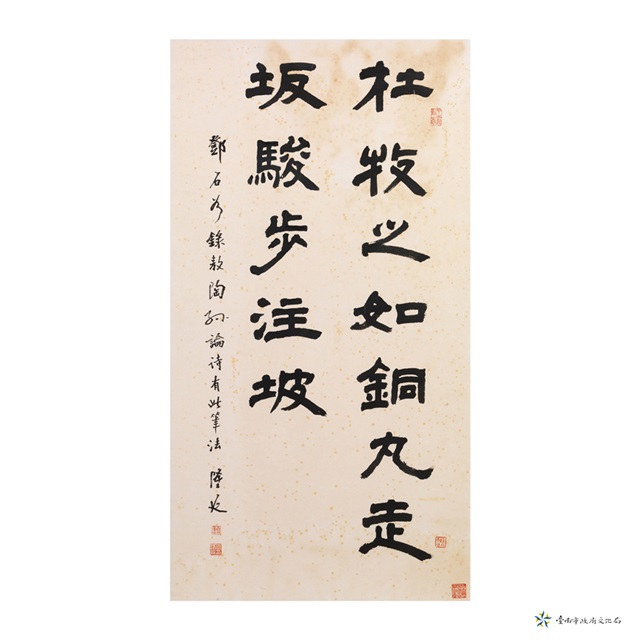 杜牧之如銅丸走
坂駿步注坡
鄧石如錄敖陶孫論詩有此筆法
臺南市政府文化局